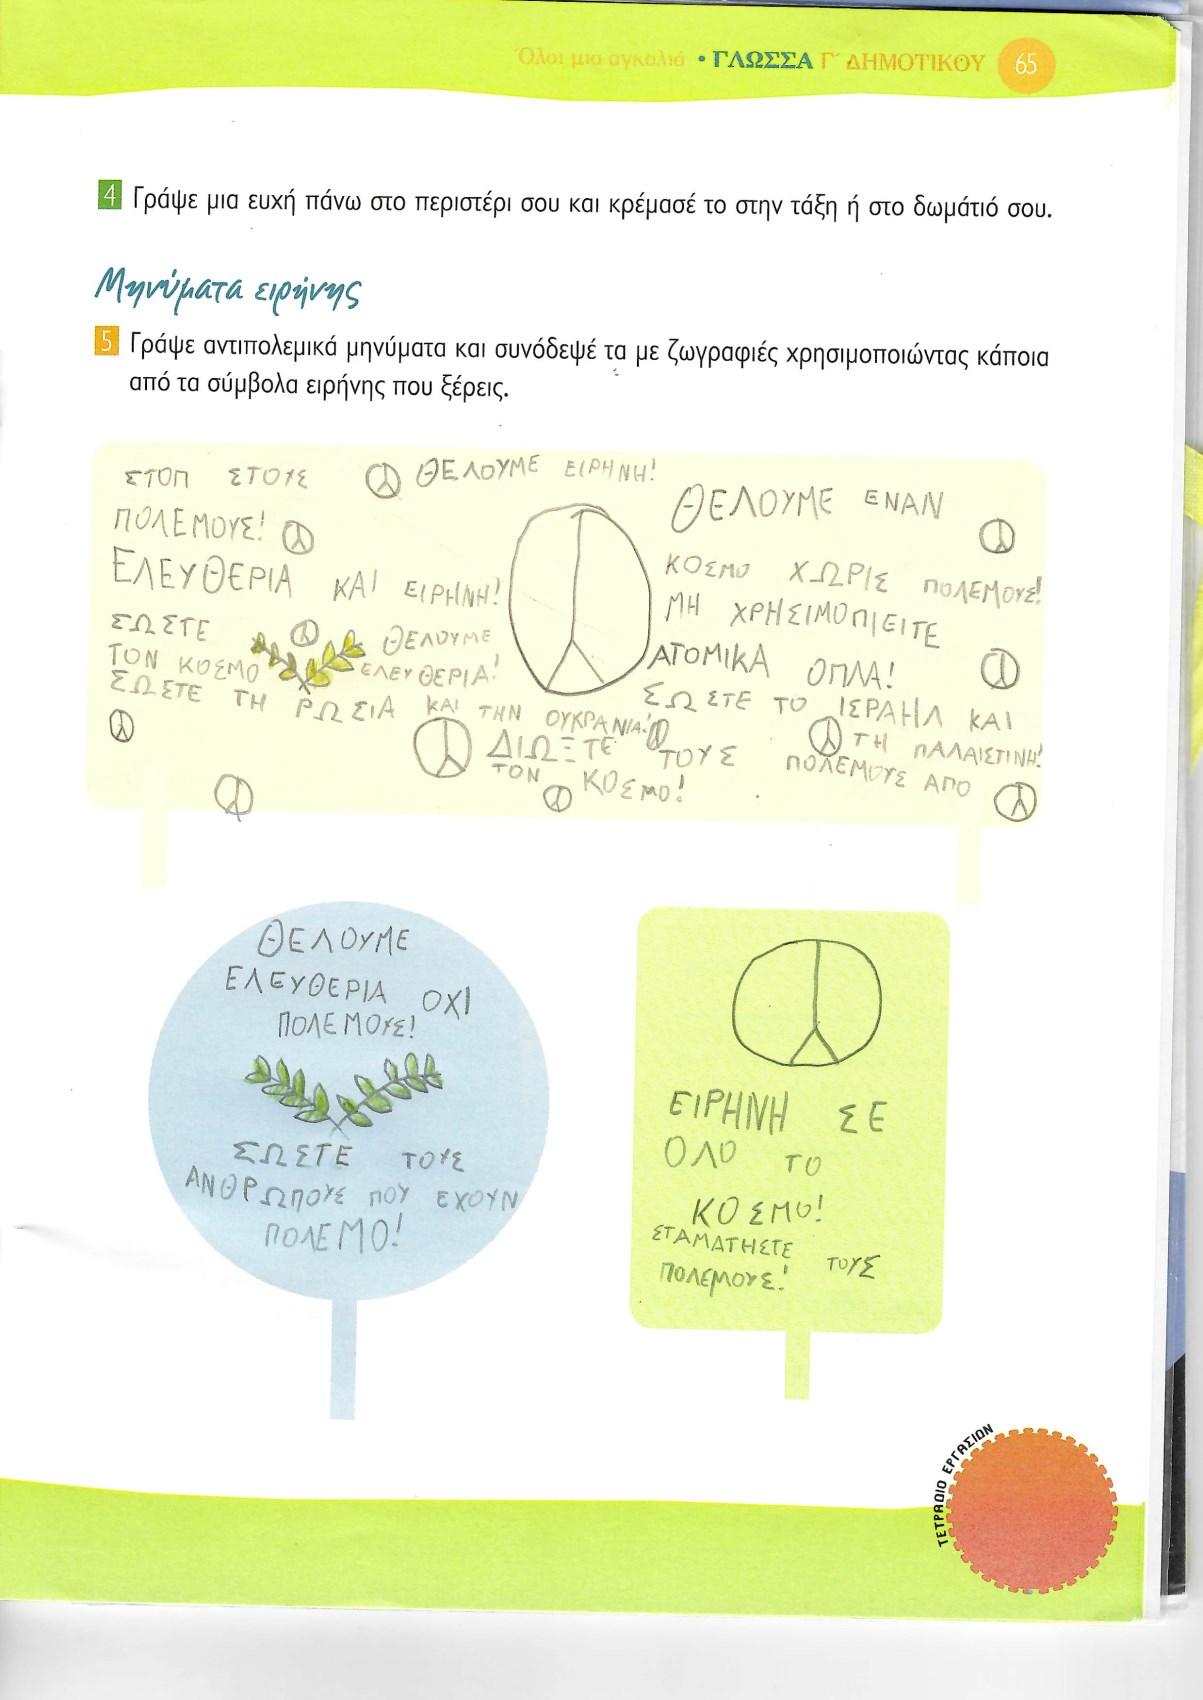 Όλοι μια αγκαλιά • ΓΛΩΣΣΑ Γ΄ ΔΗΜΟΤΙΚΟΥ 65
4 Γράψε μια ευχή πάνω στο περιστέρι σου και κρέμασέ το στην τάξη ή στο δωμάτιό σου.
Μηνύματα ειρήνης
5 Γράψε αντιπολεμικά μηνύματα και συνόδεψέ τα με ζωγραφιές χρησιμοποιώντας κάποια
από τα σύμβολα ειρήνης που ξέρεις.
ΣΤΟΠ ΣΤΟΥΣ
ΠΟΛΕΜΟΥΣ!
ΘΕΛΟΥΜΕ ΕΙΡΗΝΗ!
ΕΛΕΥΘΕΡΙΑ ΚΑΙ ΕΙΡΗΝΗ!
ΣΩΣΤΕ
ΤΟΝ ΚΟΣΜΟ
ΘΕΛΟΥΜΕ
ΕΛΕΥΘΕΡΙΑ!
ΣΩΣΤΕ ΤΗ ΡΩΣΙΑ ΚΑΙ ΤΗΝ ΟΥΚΡΑΝΙΑ!
ΘΕΛΟΥΜΕ ΕΝΑΝ
ΚΟΣΜΟ ΧΩΡΙΣ ΠΟΛΕΜΟΥΣ!
ΜΗ ΧΡΗΣΙΜΟΠΙΕΙΤΕ
ΑΤΟΜΙΚΑ ΟΠΛΑ!
ΣΩΣΤΕ ΤΟ ΙΣΡΑΗΛ ΚΑΙ
ΤΗ ΠΑΛΑΙΣΤΙΝΗ!
ΔΙΩΞΤΕ ΤΟΥΣ ΠΟΛΕΜΟΥΣ ΑΠΟ
ΤΟΝ ΚΟΣΜΟ!
ΘΕΛΟΥΜΕ
ΕΛΕΥΘΕΡΙΑ ΟΧΙ
ΠΟΛΕΜΟΥΣ!
ΣΩΣΤΕ ΤΟΥΣ
ΑΝΘΡΩΠΟΥΣ ΠΟΥ ΕΧΟΥΝ
ΠΟΛΕΜΟ!
ΕΙΡΗΝΗ ΣΕ
ΟΛΟ ΤΟ
ΚΟΣΜΟ!
ΣΤΑΜΑΤΗΣΤΕ ΤΟΥΣ
ΠΟΛΕΜΟΥΣ!
ΤΕΤΡΑΔΙΟ ΕΡΓΑΣΙΩΝ